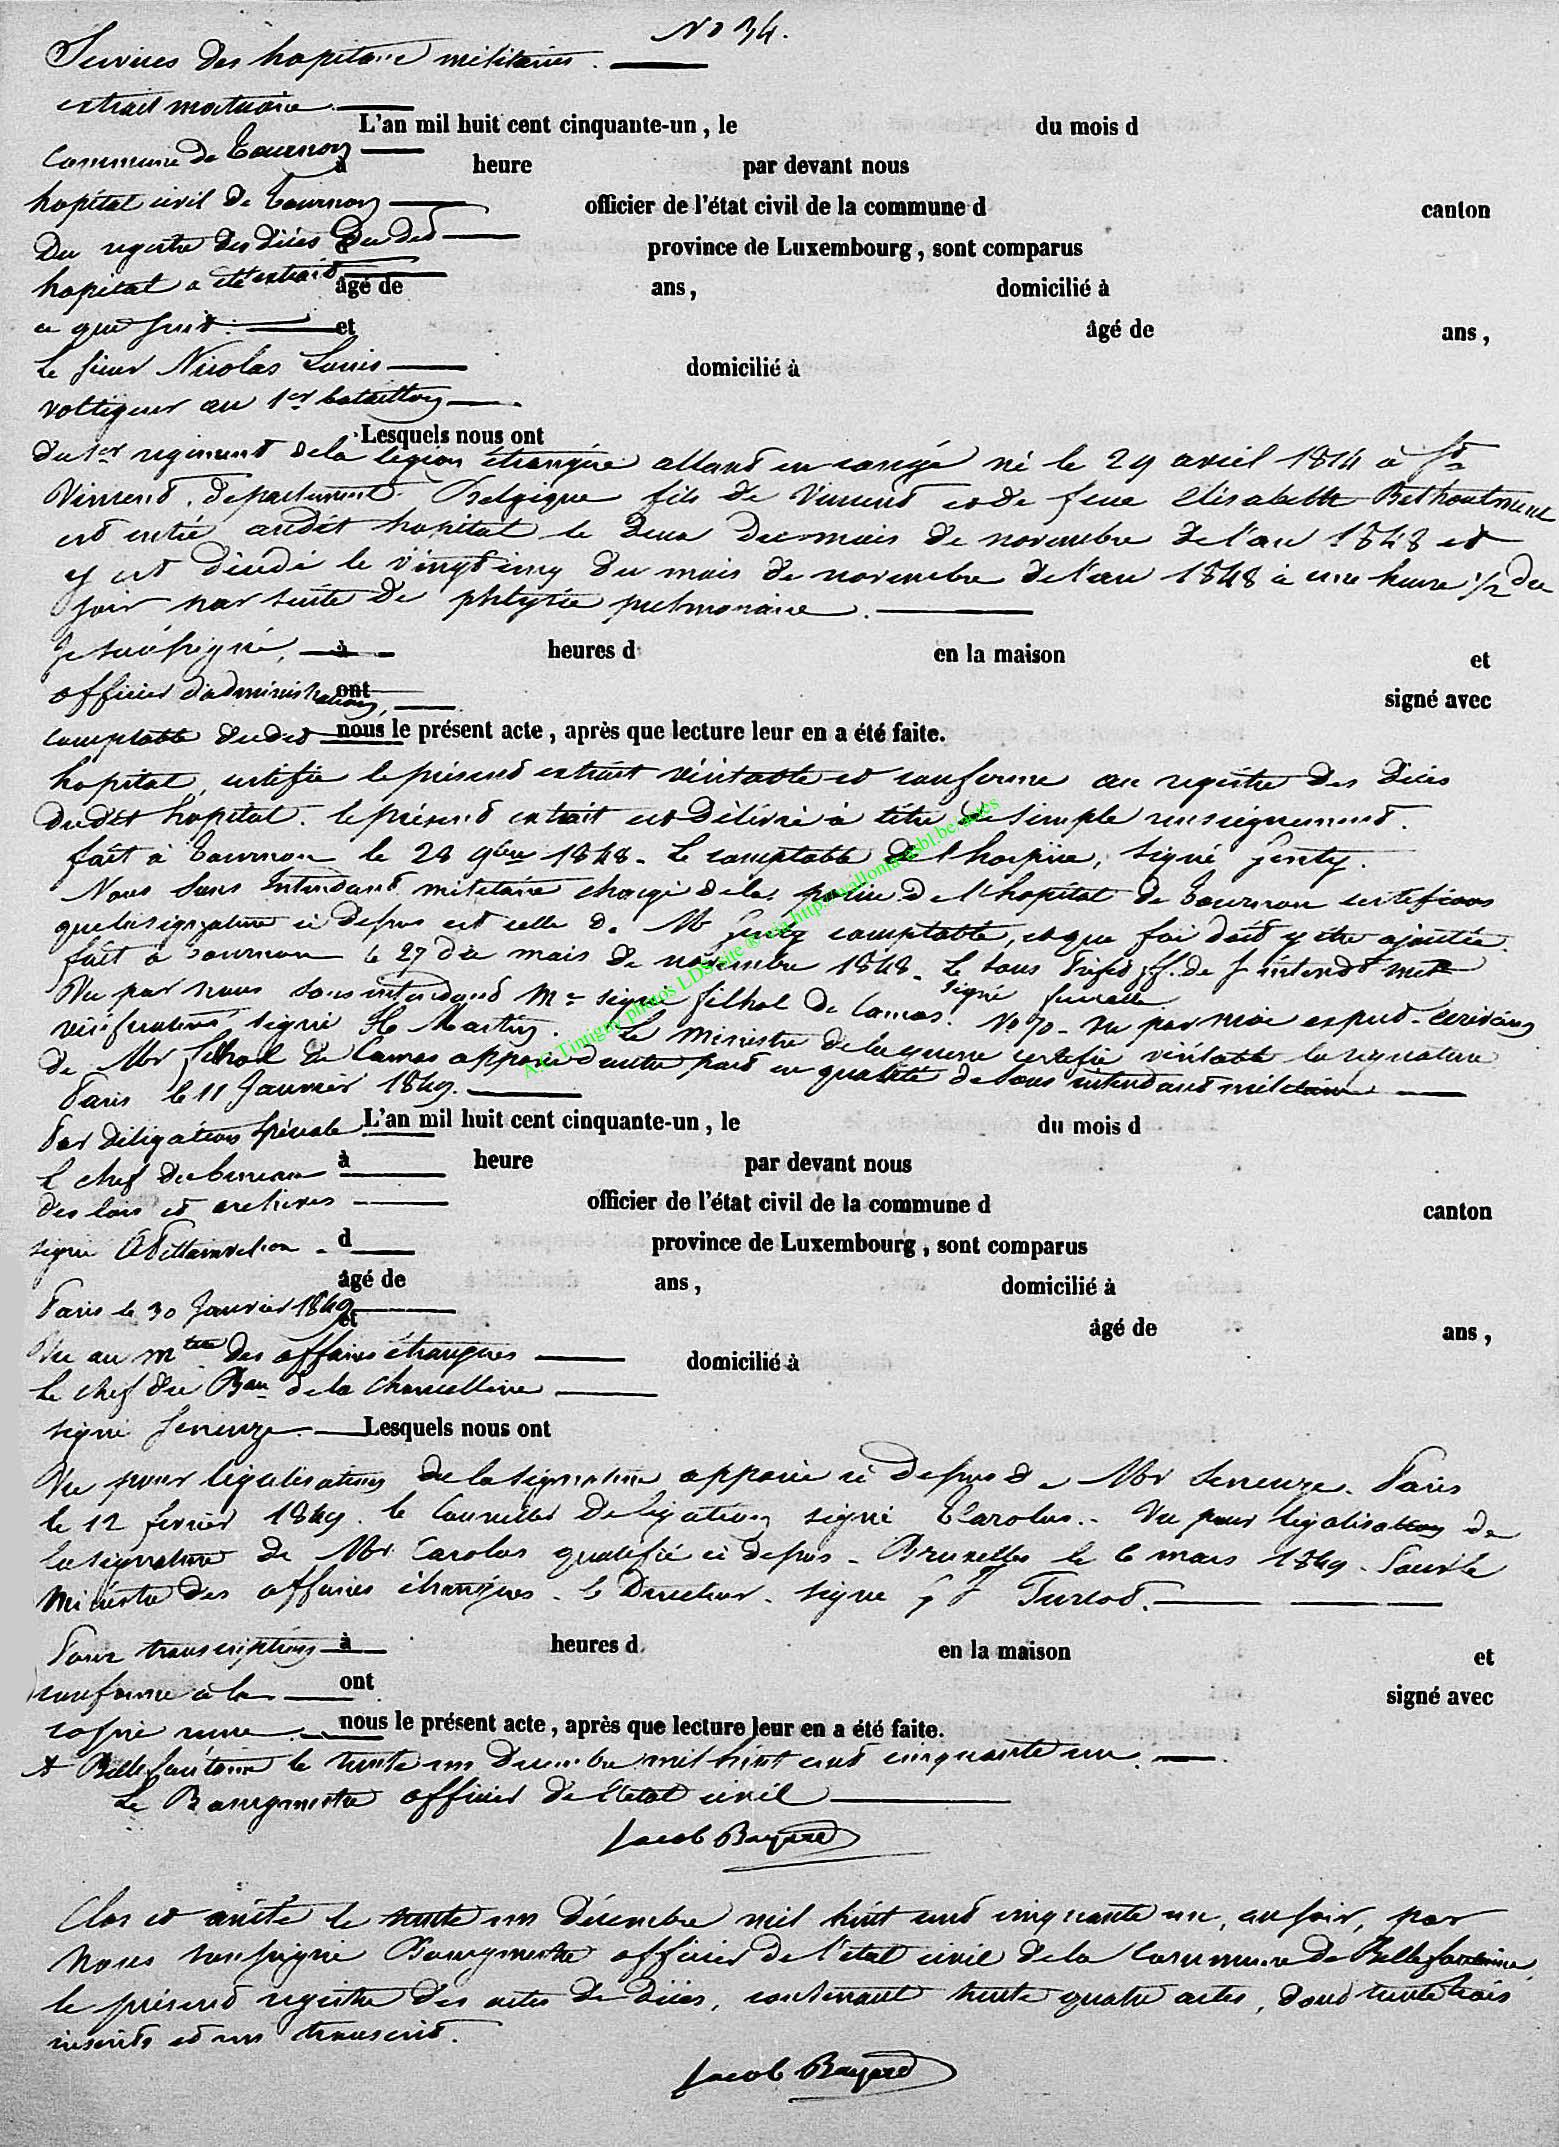 No 34.
Services des hopitaux militaires.
extrait mortuaire
L'an mil huit cent cinquante-un, le du mois d
Commune de Tournon
à heure par devant nous
hopital civil de Tournon
officier de l'état civil de la commune d canton
Du registre des décès du dit
d province de Luxembourg, sont comparus
hopital a été extrait
âgé de ans, domicilié à
ce qui suit :
et âgé de ans,
Le sieur Nicolas Louis
domicilié à
voltigeur au 1er bataillon
Lesquels nous ont
du 1er regiment de la légion étrangère allant en congé né le 29 avril 1814 à St
Vincent, département Belgique fils de Vincent et de feue Elisabeth
est entré audit hopital le deux du mois de novembre de l'an 1848 et
y est décédé le vingt cinq du mois de novembre de l'an 1848 à une heure 1/2 du
soir par suite de phtysie pulmonaire.
Je soussigné,
à heures d en la maison et
officier d'administration,
ont signé avec
comptable du dit
nous le présent acte, après que lecture leur en a été faite.
hopital, certifie le présent extrait véritable et conforme au registre des décès
dudit hopital. le présent extrait est délivré à titre de simple renseignement.
fait à Tournon le 28 9bre 1848. Le comptable de l'hospice, signé Genty.
Nous Sous Intendant militaire chargé de la police de l'hopital de Tournon certifions
que la signature ci dessus est celle de Mr Genty comptable, et que foi doit y être ajoutée.
fait à Tournon le 27 du mois de novembre 1848. Le Sous Préfet ff. de s intendt mre
signé
Vu par nous sous intendant Mre signé filhol de Camas. No 70. Vu par moi
signé H Martin. Le Ministre de la guerre certifie véritable la signature
de Mr filhol de Camas apposée d'autre part en qualité de sous intendant militaire
Paris le 11 Janvier 1849.
Par délégation spéciale
L'an mil huit cent cinquante-un, le du mois d
le chef du bureau
à heure par devant nous
des lois et archives
officier de l'état civil de la commune d canton
signé
d province de Luxembourg, sont comparus
âgé de ans, domicilié à
Paris le 30 Janvier 1849
et âgé de ans,
Vu au mtre des affaires étrangères
domicilié à
Le chef du Bau de la Chancellerie
signé
Lesquels nous ont
Vu pour légalisation de la signature apposée ci dessus de Mr Paris
le 12 février 1849. le Conseiller de légation signé Carolus. Vu pour légalisation de
la signature de Mr Carolus qualifié ci dessus. Bruxelles le 6 mars 1849. Pour le
Ministre des affaires étrangères. le Directeur. signé
Pour transcription
à heures d en la maison et
conforme à la
ont signé avec
copie
nous le présent acte, après que lecture leur en a été faite.
A Bellefontaine le trente un Decembre mil huit cent cinquante un.
Le Bourgmestre officier de l'état civil
Jacob Bayard
Clos et arrêté le trente un décembre mil huit cent cinquante un, au soir, par
Nous soussigné Bourgmestre officier de l'état civil de la Commune de Bellefontaine,
le présent registre des actes de décès, contenant trente quatre actes, dont trente trois
inscrits et un transcrit.
Jacob Bayard